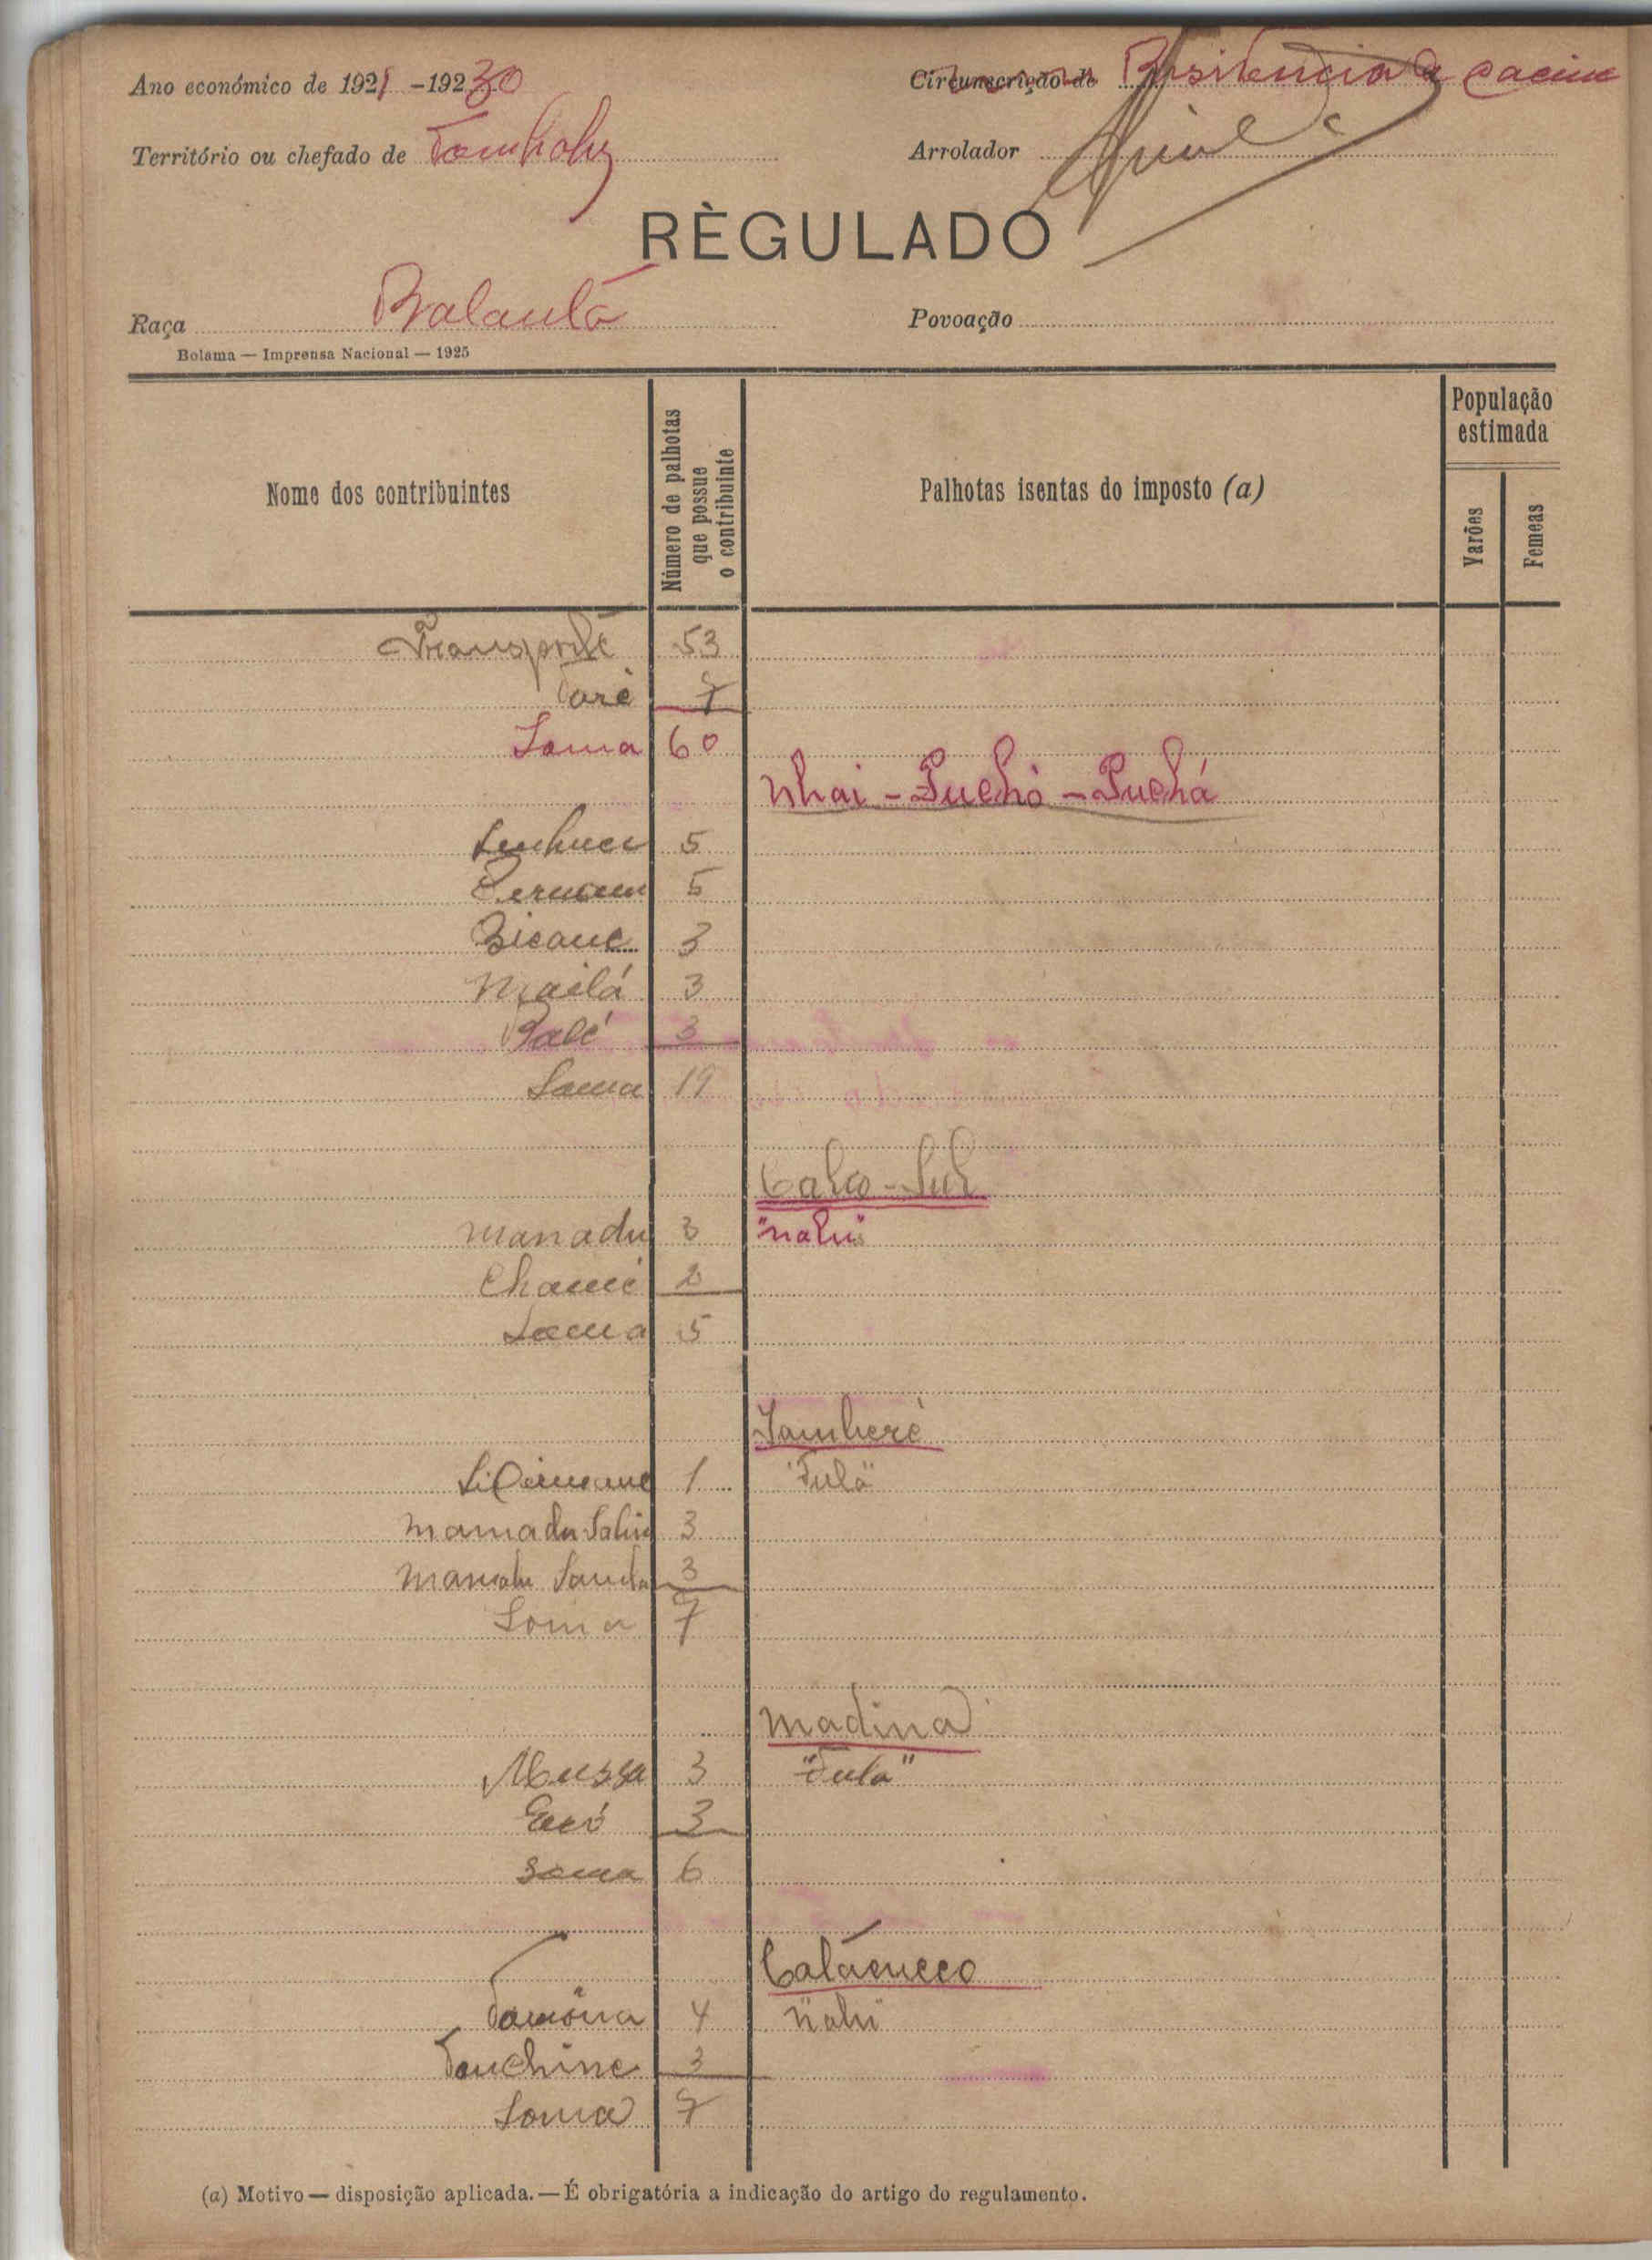 Ano económico de 1929 -192 30
Circunscrição de Residencia de Cacine
Território ou chefado de
Arrolador
RÈGULADO
Raça Balanta
Povoação
Bolama — Imprensa Nacional — 1925
Nome dos contribuintes
Número de palhotas que possue o contribuinte
Palhotas isentas do imposto (a)
População estimada
Varões
Femeas
Transporte 53
Taré 7
Soma 60
Nhai - - 
5
5
Bicane 3
Mailá 3
3
Soma 19
Cabo - Sul
Manadu 3 "nalu"
2
Soma 5
Jamberé
1 "Fula"
Mamadu Saliu 3
3
Soma 7
Madina
Mussa 3 "Fula"
3
Soma 6
4 "nalu"
Tanchine 3
Soma 7
(a) Motivo — disposição aplicada. — É obrigatória a indicação do artigo do regulamento.